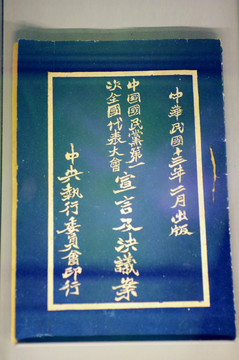 中華民國十三年二月出版
中国國民黨第一
次全國代表大會
宣言及決議案
中央執行委員會印行